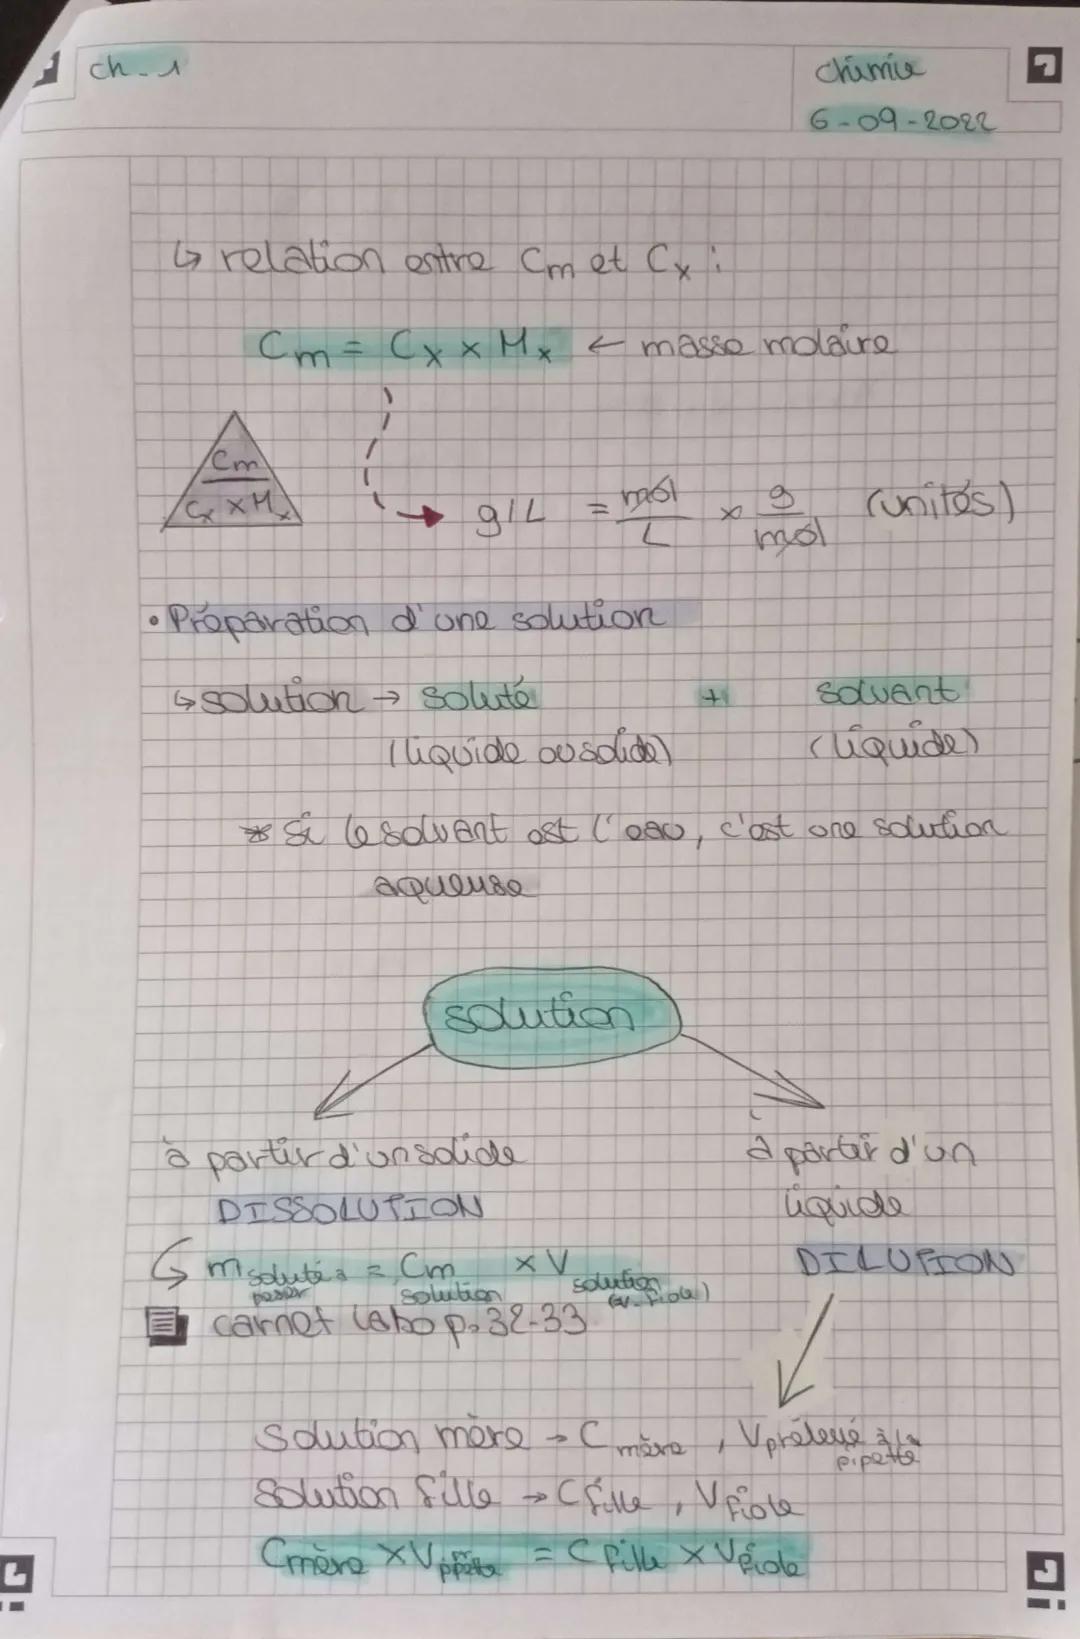 ch-1
Chimie
6-09-2022
↳ relation entre Cm et Cx :
Cm = Cx × Mx ← masse molaire
Cm
Cx × Mx
g/L = mol/L × g/mol (unités)
• Préparation d'une solution
↳ solution → soluté + solvant
(liquide ou solide) (liquide)
* Si le solvant est l'eau, c'est une solution
aqueuse
solution
à partir d'un solide
DISSOLUTION
à partir d'un
liquide
DILUTION
m soluté à peser = Cm solution × V solution (v. fiole)
carnet labo p. 32-33
Solution mère → C mère, V prélevé à la pipette
Solution fille → C fille, V fiole
Cmère × V pipette = C fille × V fiole